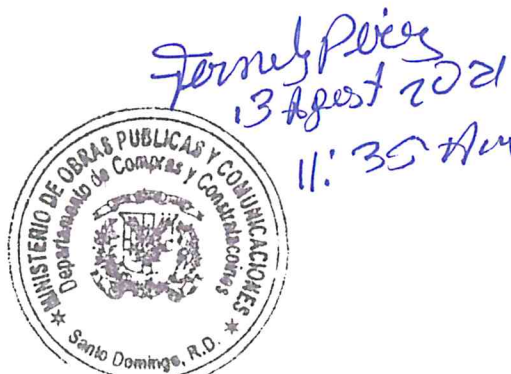 Pérez
13 Agost 2021
11:35 Am
MINISTERIO DE OBRAS PUBLICAS Y COMUNICACIONES
Departamento de Compras y Contrataciones
Santo Domingo, R.D.